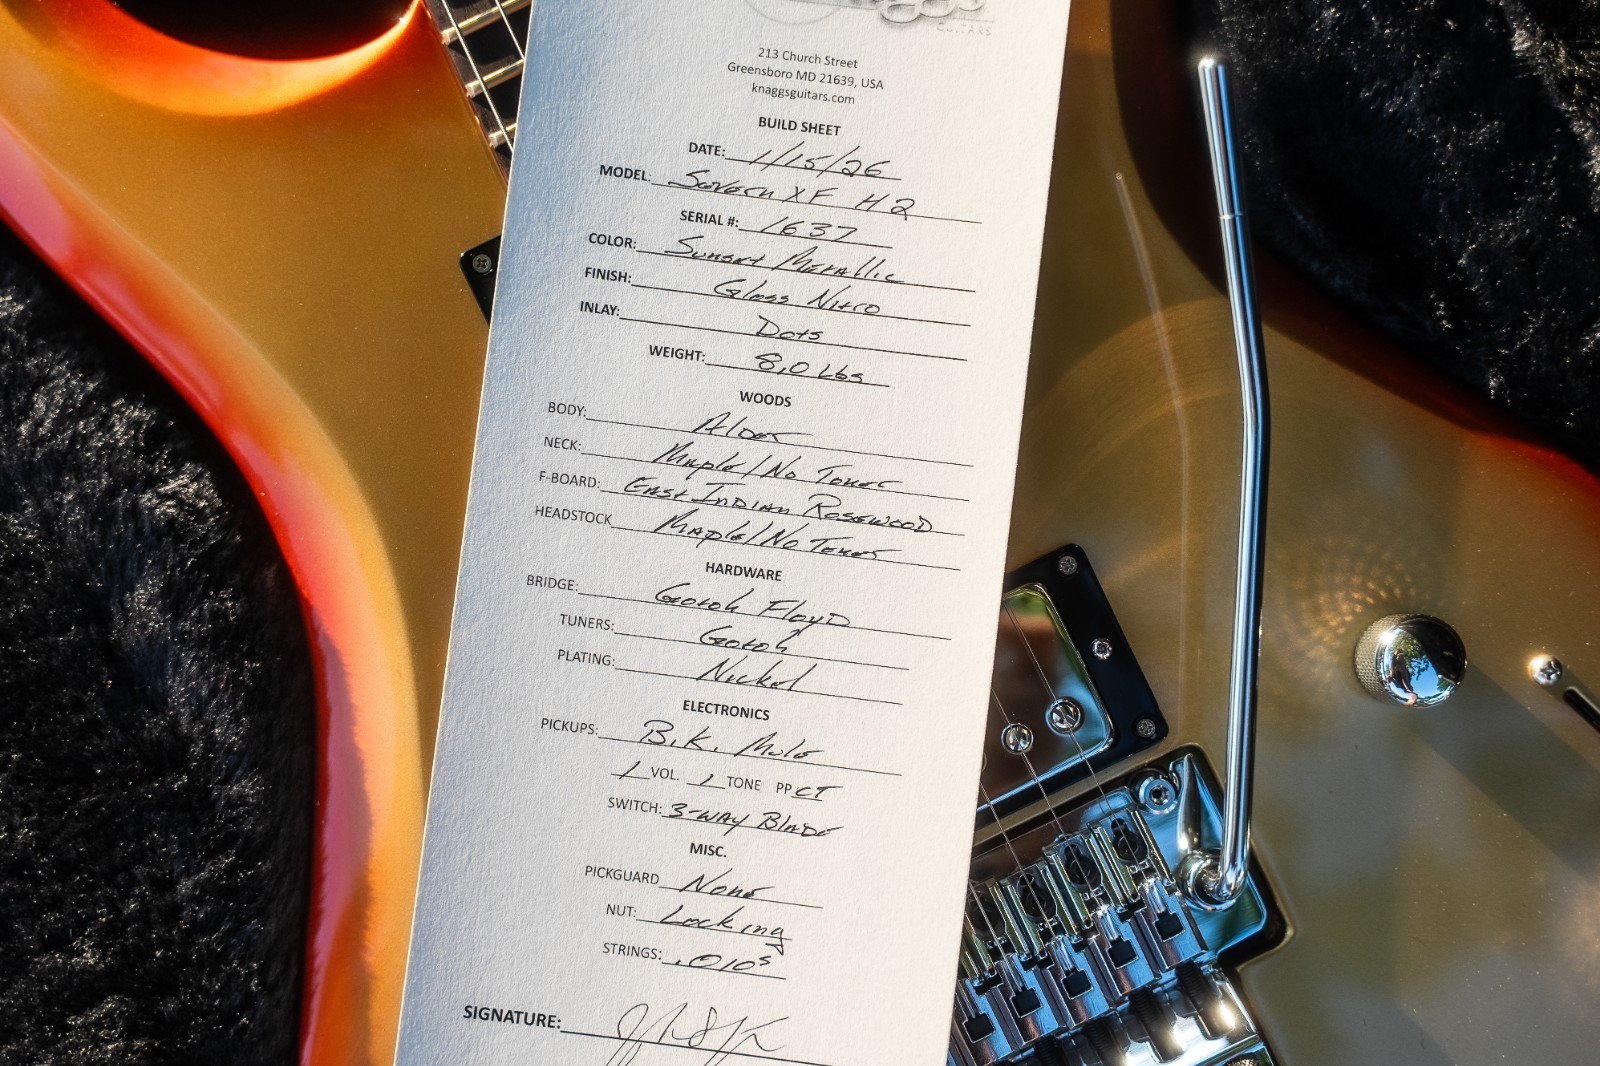 Knaggs
GUITARS
213 Church Street
Greensboro MD 21639, USA
knaggsguitars.com
BUILD SHEET
DATE: 1/15/26
MODEL: Severn XF H2
SERIAL #: 1637
COLOR: Sunset Metallic
FINISH: Gloss Nitro
INLAY: Dots
WEIGHT: 8.0 Lbs
WOODS
BODY: Alder
NECK: Maple/No Toner
F-BOARD: East Indian Rosewood
HEADSTOCK Maple/No Toner
HARDWARE
BRIDGE: Gotoh Floyd
TUNERS: Gotoh
PLATING: Nickel
ELECTRONICS
PICKUPS: B.K. Mule
1 VOL. 1 TONE PP CT
SWITCH: 3-WAY Blade
MISC.
PICKGUARD None
NUT: Locking
STRINGS: .010s
SIGNATURE: